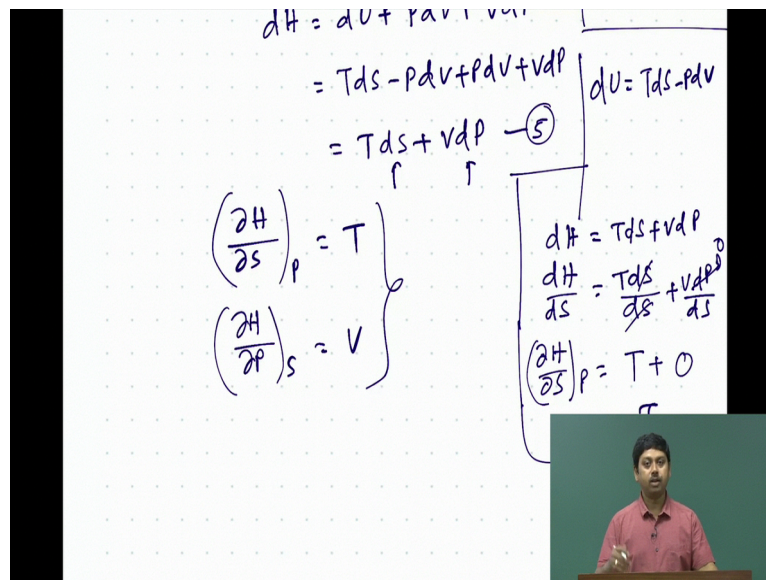 dH = dU + PdV + VdP
= TdS - PdV + PdV + VdP
= TdS + VdP — 5
(∂H/∂S)P = T
(∂H/∂P)S = V
dU = TdS - PdV
dH = TdS + VdP
dH/dS = TdS/dS + VdP/dS 0
(∂H/∂S)P = T + 0
T